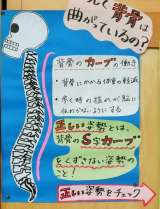 背骨は
曲がっているの?
背骨のカーブの働き
・背骨にかかる体重の軽減
・歩く時の揺れが脳に
伝わらないようにする
正しい姿勢とは、
背骨のS字カーブ
をくずさない姿勢の
こと!
正しい姿勢をチェック